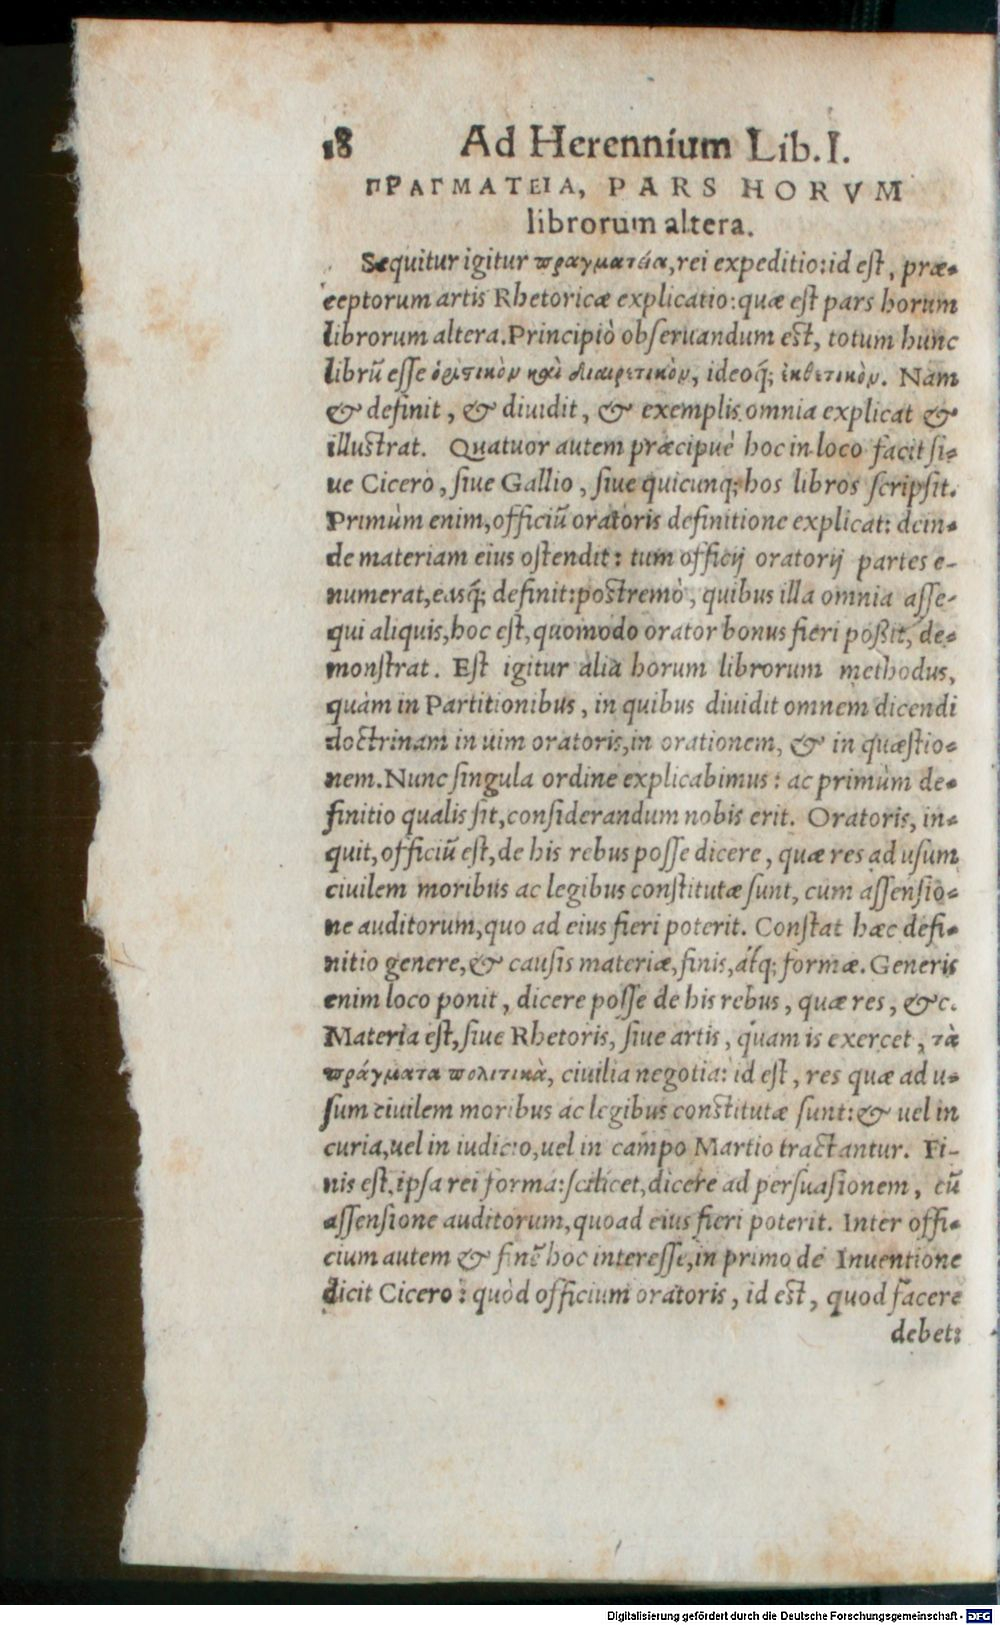 18 Ad Herennium Lib. I.
ΠΡΑΓΜΑΤΕΙΑ, PARS HORVM
librorum altera.
Sequitur igitur πραγματεία, rei expeditio: id eſt, præ-
ceptorum artis Rhetoricæ explicatio: quæ eſt pars horum
librorum altera. Principiò obſeruandum eſt, totum hunc
librū eſſe ὁριστικὸν καὶ διαιρετικὸν, ideoq́; ἐκθετικὸν. Nam
& definit, & diuidit, & exemplis omnia explicat &
illuſtrat. Quatuor autem præcipuè hoc in loco facit ſi-
ue Cicero, ſiue Gallio, ſiue quicunq; hos libros ſcripſit.
Primùm enim, officiū oratoris definitione explicat: dein-
de materiam eius oſtendit: tum officij oratorij partes e-
numerat, easq́; definit: poſtremò, quibus illa omnia aſſe-
qui aliquis, hoc eſt, quomodo orator bonus fieri poßit, de-
monſtrat. Eſt igitur alia horum librorum methodus,
quàm in Partitionibus, in quibus diuidit omnem dicendi
doctrinam in uim oratoris, in orationem, & in quæſtio-
nem. Nunc ſingula ordine explicabimus: ac primùm de-
finitio qualis ſit, conſiderandum nobis erit. Oratoris, in-
quit, officiū eſt, de his rebus poſſe dicere, quæ res ad uſum
ciuilem moribus ac legibus conſtitutæ ſunt, cum aſſenſio-
ne auditorum, quo ad eius fieri poterit. Conſtat hæc defi-
nitio genere, & cauſis materiæ, finis, atq́; formæ. Generis
enim loco ponit, dicere poſſe de his rebus, quæ res, &c.
Materia eſt, ſiue Rhetoris, ſiue artis, quam is exercet, τὰ
πράγματα πολιτικὰ, ciuilia negotia: id eſt, res quæ ad u-
ſum ciuilem moribus ac legibus conſtitutæ ſunt: & uel in
curia, uel in iudicio, uel in campo Martio tractantur. Fi-
nis eſt, ipſa rei forma: ſcilicet, dicere ad perſuaſionem, cū
aſſenſione auditorum, quoad eius fieri poterit. Inter offi-
cium autem & finē hoc intereſſe, in primo de Inuentione
dicit Cicero: quòd officium oratoris, id eſt, quod facere
debet:
Digitalisierung gefördert durch die Deutsche Forschungsgemeinschaft - DFG